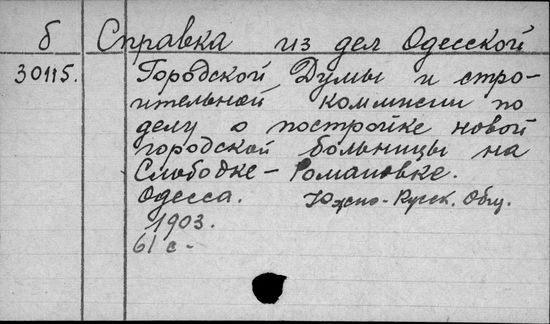 б Справка из дел Одесской
30115. Городской Думы и стро-
ительной комиссии по
делу о постройке новой
городской больницы на
Слободке-Романовке.
Одесса. Южно-Русск. Общ.
1903.
61 с.